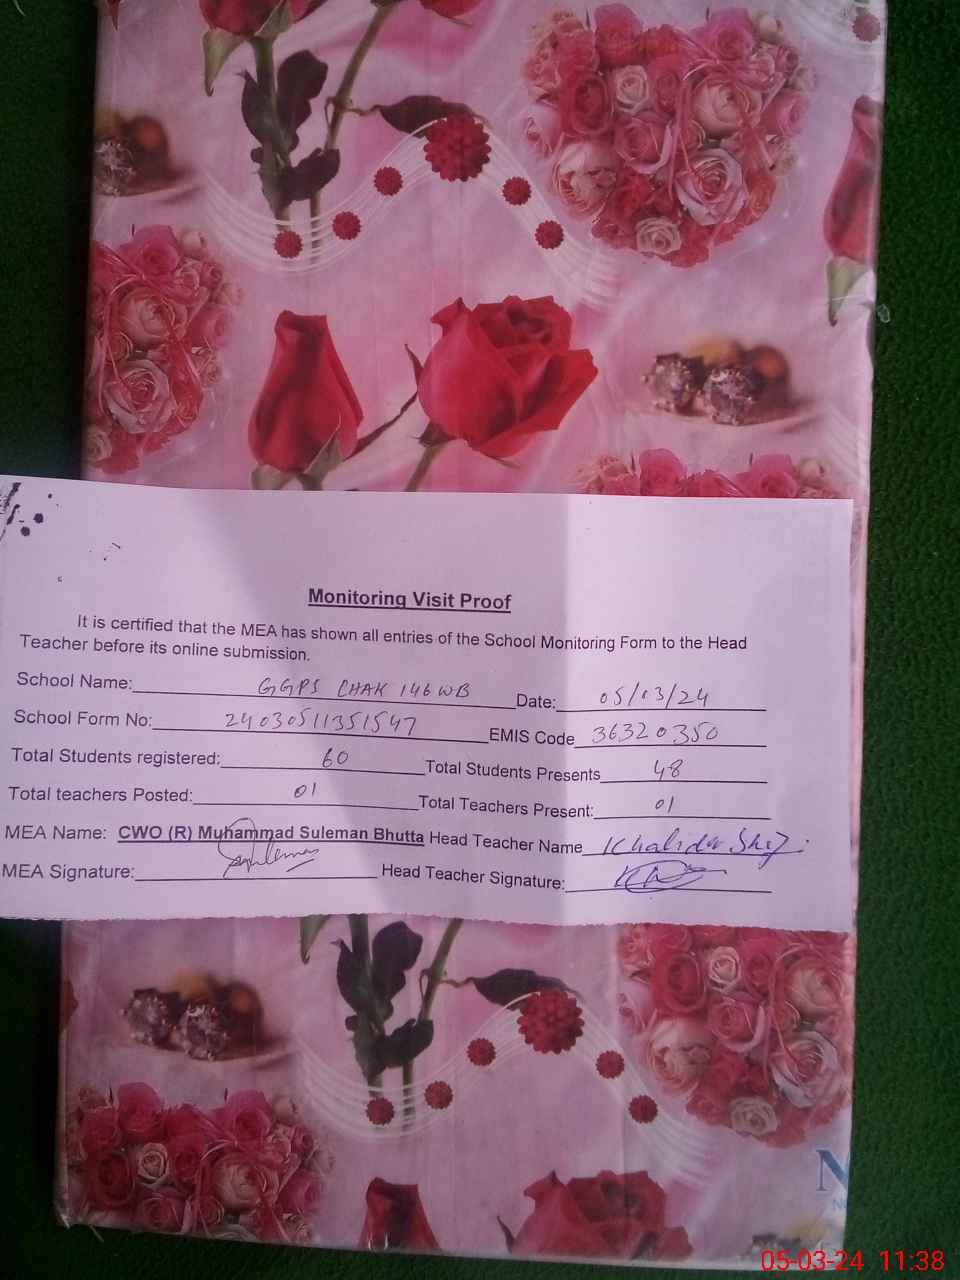 Monitoring Visit Proof
It is certified that the MEA has shown all entries of the School Monitoring Form to the Head
Teacher before its online submission.
School Name: GGPS CHAK 146 WB Date: 05/03/24
School Form No: 24030511351547 EMIS Code 36320350
Total Students registered: 60 Total Students Presents 48
Total teachers Posted: 01 Total Teachers Present: 01
MEA Name: CWO (R) Muhammad Suleman Bhutta Head Teacher Name Khalida
MEA Signature: Head Teacher Signature:
N
05-03-24 11:38